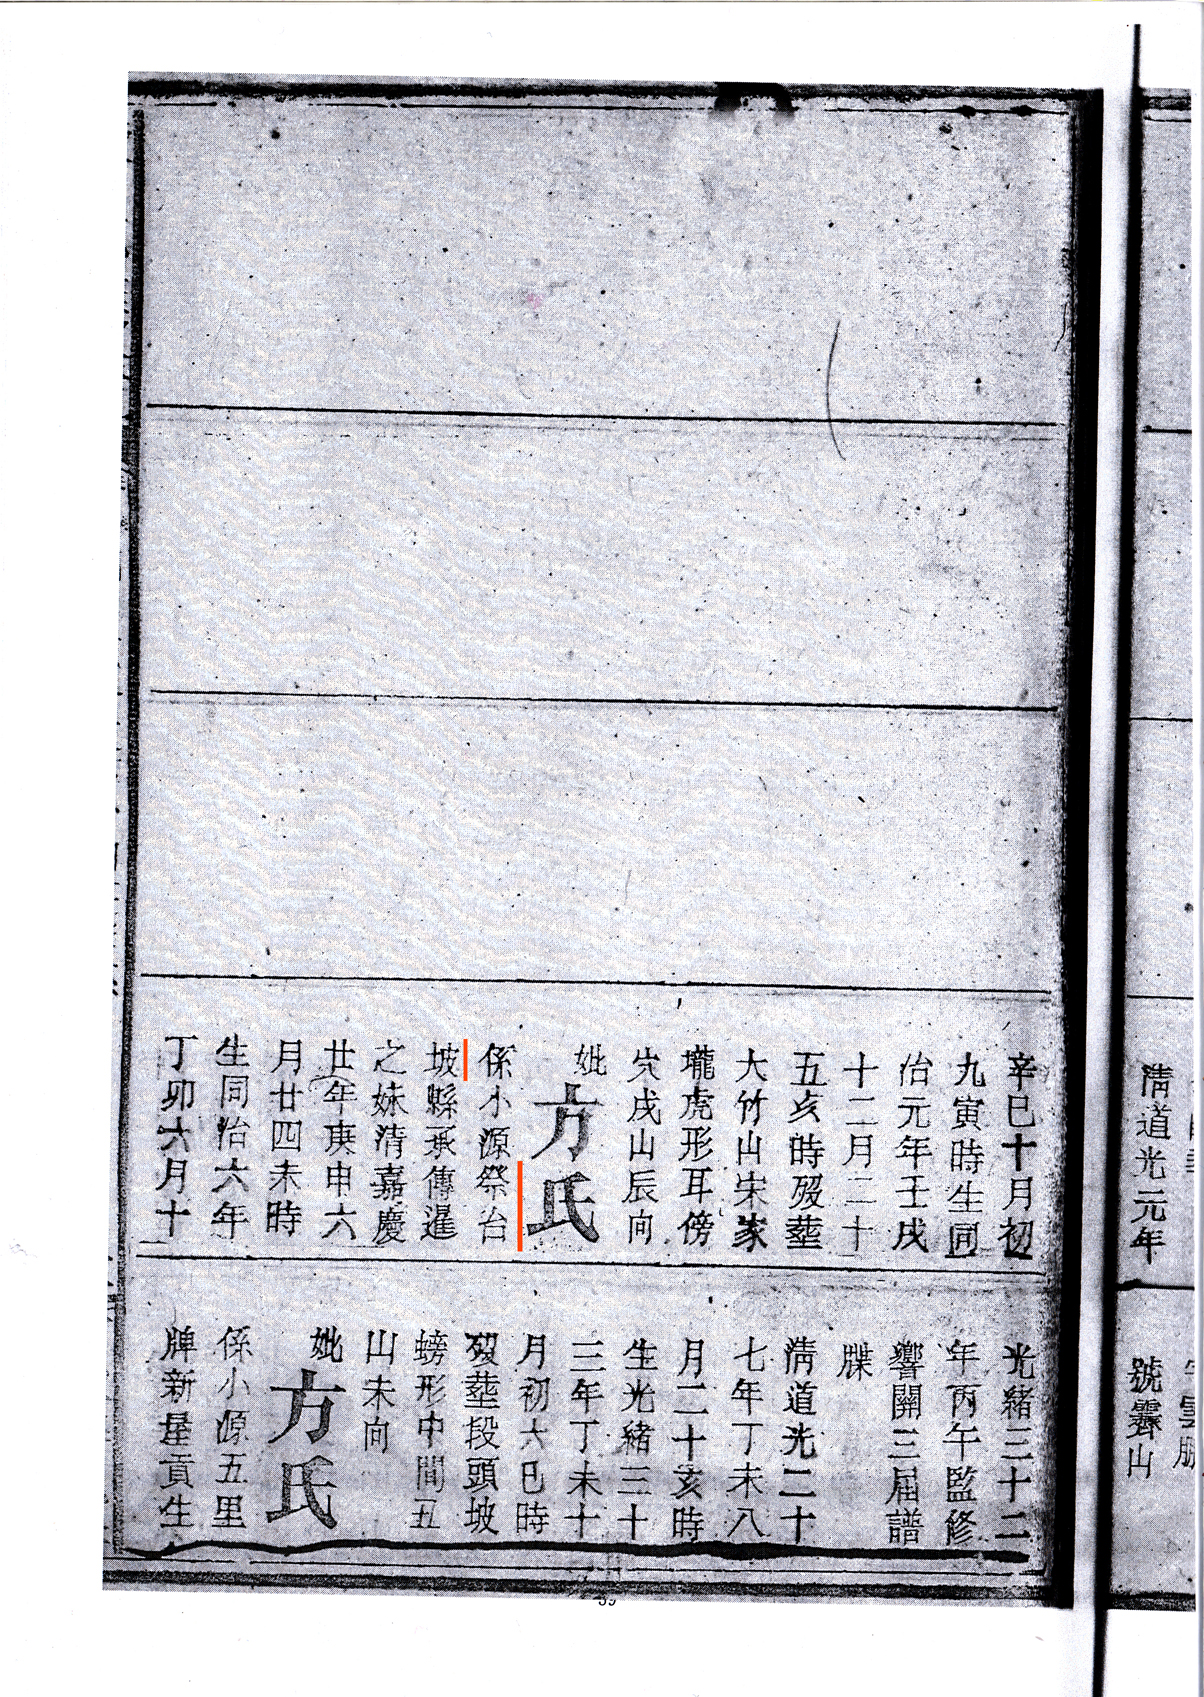 清道光元年
號霽山
辛巳十月初
九寅時生同
治元年壬戌
十二月二十
五亥時殁塟
大竹山宋家
壠虎形耳傍
穴戌山辰向
妣方氏
係小源祭台
坡縣承傳暹
之妹清嘉慶
廿年庚申六
月廿四未時
生同治六年
丁卯六月十
光緒三十二
年丙午監修
響開三屆譜
牒
清道光二十
七年丁未八
月二十亥時
生光緒三十
三年丁未十
月初六巳時
殁塟段頭坡
螃形中間丑
山未向
妣方氏
係小源五里
牌新屋貢生